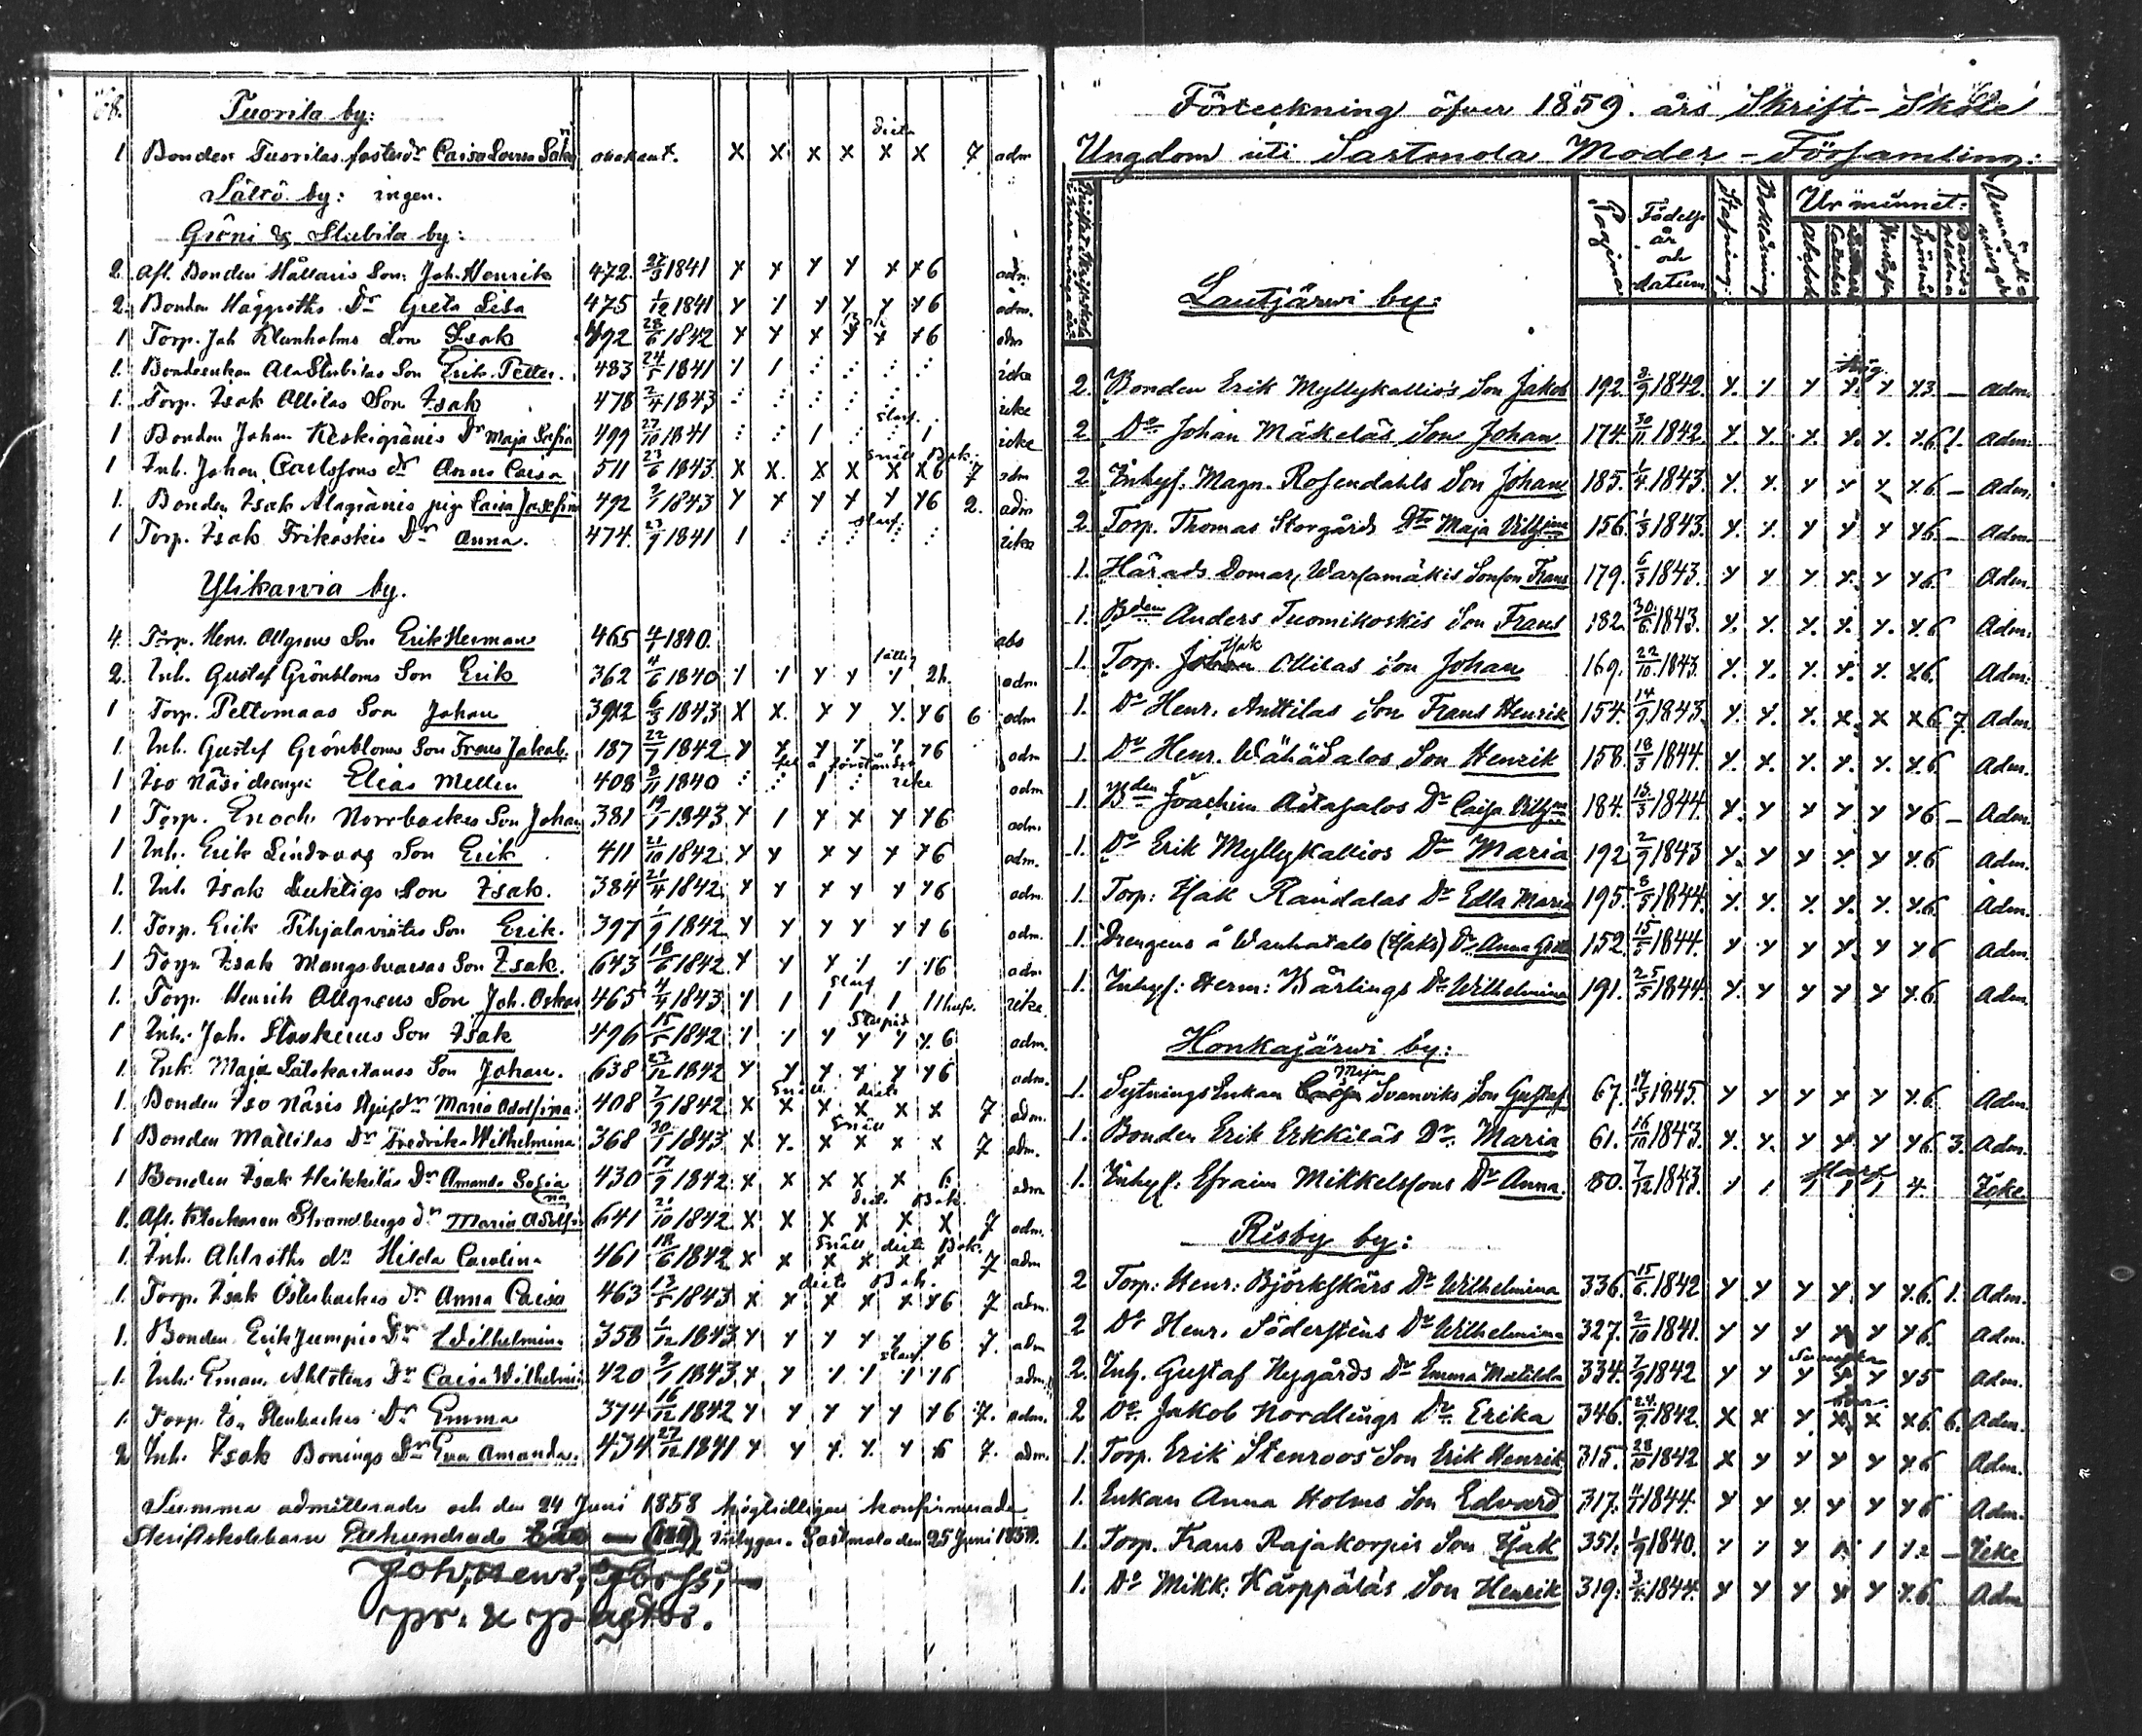 58.
Tuorila by:
1 Bonden Tuorilas fosterdr Caisa Lovisa obekant. X X X X X X 7 adm
Sältö by: ingen.
Gröni & Stubila by:
2. Afl. Bonden Hållaris Son: Joh. Henrik 472. 27/3 1841 y y y y y y6 adm.
2. Bonden Häggroths Dr Greta Lisa 475 1/12 1841 y y y y y y6 adm.
1 Torp. Joh Klemholms Son Isak 492 28/6 1842 y y y y y y6 adm
1. Bondeenkan AlaStubilas Son Erik Petter. 483 24/5 1841 icke
1. Torp. Isak Ollilas Son Isak 478 2/4 1843 icke
1 Bonden Johan Keskigränis Dr Maja Sofia 499 27/10 1841 icke
1 Inh. Johan Carlssons dr Anna Caisa 511 23/6 1843 X X. X X X X6 7 adm
1. Bonden Isak Alagränis piga Caisa Josefin 492 1843 y y y y y y6 2. adm
1 Torp. Isak Frikoskis Dr Anna. 474. 23/9 1841 icke
Ylikawia by.
4. Torp. Henr. Allgrens Son Erik Herman 465 4/4 1840. abs
2. Inh. Gustaf Grönbloms Son Erik 362 4/6 1840 y y y y y 2h. adm.
1 Torp. Peltomaas Son Johan 392 6/3 1843 X X. y y y. y6 6 adm
1. Inh. Gustef Grönbloms Son Frans Jakob. 187 22/7 1842 y y y y y y6 adm
1 Iso Näsi drengen Elias Mellin 408 8/11 1840 icke adm
1 Torp. Enoch Norrbackas Son Johan 381 19/1 1843 y 1 y x y y6 adm.
1 Inh. Erik Lindroos Son Erik 411 21/10 1842 y y y y y y6 adm.
1. Inh. Isak Son Isak. 384 21/4 1842 y y y y y y6 adm.
1. Torp. Erik Son Erik. 397 1842 y y y y y y6 adm.
1 Torp. Isak Son Isak. 643 18/6 1842 y y y y y y6 adm
1. Torp. Henrik Allgrens Son Joh. Oskar 465 4/4 1843 icke.
1 Inh. Joh. Son Isak 496 15/5 1842 y y y y y y. 6 adm.
1. Enk. Maja Son Johan. 638 23/12 1842 y y y y y y6 adm.
1. Bonden Iso Näsis Maria Adolfina 408 7/9 1842 X X X X X X 7 adm.
1 Bonden Mattilas Dr Fredrika Wilhelmina 368 30/1 1843 X X X X X X 7 adm.
1 Bonden Isak Heikkiläs Dr Amanda Sofia 430 17/9 1842 X X X X X 6 adm
1. Afl. Strandbergs dr Maria Adolfina 641 21/10 1842 X X X X X X 7 adm.
1. Inh. Ahlroths dr Hilda Carolina 461 18/6 1842 X X X X X X 7 adm
1. Torp. Isak Österbackas dr Anna Caisa 463 13/5 1843 X y X X X y6 7 adm.
1. Bonden Erik Jumpis Dr Wilhelmina 358 1/12 1843 y y y y y y6 7. adm
1. Inh. Eman. Ahlstens Dr Caisa Wilhelmi 420 1843 y y y y y y6 adm.
1. Torp. Stenbackas Dr Emma 374 16/12 1842 y y y y y y6 7. adm.
2 Inh. Isak Bonings Dr Eva Amanda. 434 27/12 1841 y y y. y. y 6 7. adm.
Summa admitterade och den 24 Juni 1858 högtidligen konfirmerade
Skriftskolebarn Sastmola den 25 Juni 1858.
Joh. Henr.
pr. & pastor.
Förteckning öfver 1859. års Skrift-Skole
Ungdom uti Sastmola Moder-Församling:
Pagina Födelse år och datum Stafning: Boklåsning Ur minnet: Anmärkningar
Lautjärwi by:
2. Bonden Erik Myllykallios Son Jakob 192. 2/9 1842. y. y y y. y y.3 — Adm.
2 Do Johan Mäkeläs Son Johan 174. 30/11 1842. y. y. y. y. y. y.6 1. Adm.
2 Inhys. Magn. Rosendahls Son Johan 185. 1/4 1843. y. y. y y y y.6 — Adm.
2. Torp. Thomas Storgårds Dtr Maja Vilhna 156. 1/3 1843. y. y. y y y y6. — Adm.
1. Härads Domar, Warsamäkis Sonson Frans 179. 6/3 1843. y y y y. y y6. Adm.
1. Bden Anders Tuomikoskis Son Frans 182. 30/6 1843. y. y. y. y. y. y.6 Adm.
1. Torp. Johan Isak Ollilas Son Johan 169. 22/10 1843. y. y. y. y. y. y6. Adm.
1. Do Henr. Anttilas Son Frans Henrik 154. 14/9 1843. y. y. y. x. x x6. 7. Adm.
1. Do Henr. WähäSalos Son Henrik 158. 18/3 1844. y. y. y. y. y. y.6 Adm.
1. Bden Joachim Aütasalos Dr Caisa Vilhna 184. 13/3 1844. y. y y y y y6 — Adm.
1. Do Erik Myllykallios Dr Maria 192 2/9 1843 y. y y y. y y.6 Adm.
1. Torp: Isak Randalas Dr Edla Maria 195. 8/5 1844. y. y. y. y. y. y.6. Adm.
1. Drengens å Wanhatalo (Isaks) Dr Anna Greta 152. 15/5 1844. y. y y y. y y6 Adm.
1. Inhys: Herm: Bärlings Dr Wilhelmina 191. 25/5 1844. y. y y y y y.6. Adm.
Honkajärwi by:
1. SytningsEnkan Caisa Maja Svanviks Son Gustaf 67. 17/3 1845. y y y y y y.6 Adm.
1. Bonden Erik Erkkiläs Dr. Maria 61. 16/10 1843. y. y. y y y y6 3. Adm.
1. Inhys. Efraim Mikkelssons Dr Anna. 80. 7/12 1843. Icke
Risby by:
2 Torp: Henr: Björkskärs Dr Wilhelmina 336. 15/6 1842 y y y y y y.6. 1. Adm.
2 Do Henr. Söderstens Dr Wilhelmina 327. 2/10 1841. y y y y y y6. Adm.
2. Inh. Gustaf Nygårds Dr Emma Matilda 334. 7/9 1842 y y y y y y5 Adm.
2 Do. Jakob Nordlings Dr. Erika 346. 24/9 1842. x x y x x x6 6. Adm.
1. Torp. Erik Stenroos Son Erik Henrik 315. 28/10 1842 x y y y y y6 Adm.
1. Enkan Anna Holms Son Edvard 317. 1844. y y y y y y6 Adm.
1. Torp. Frans Rajakorpis Son Isak 351. 1/9 1840. y y y 1. 1 y2 — Icke
1. Do Mikk: Karppäläs Son Henrik 319. 1844. y y y y y y.6. Adm